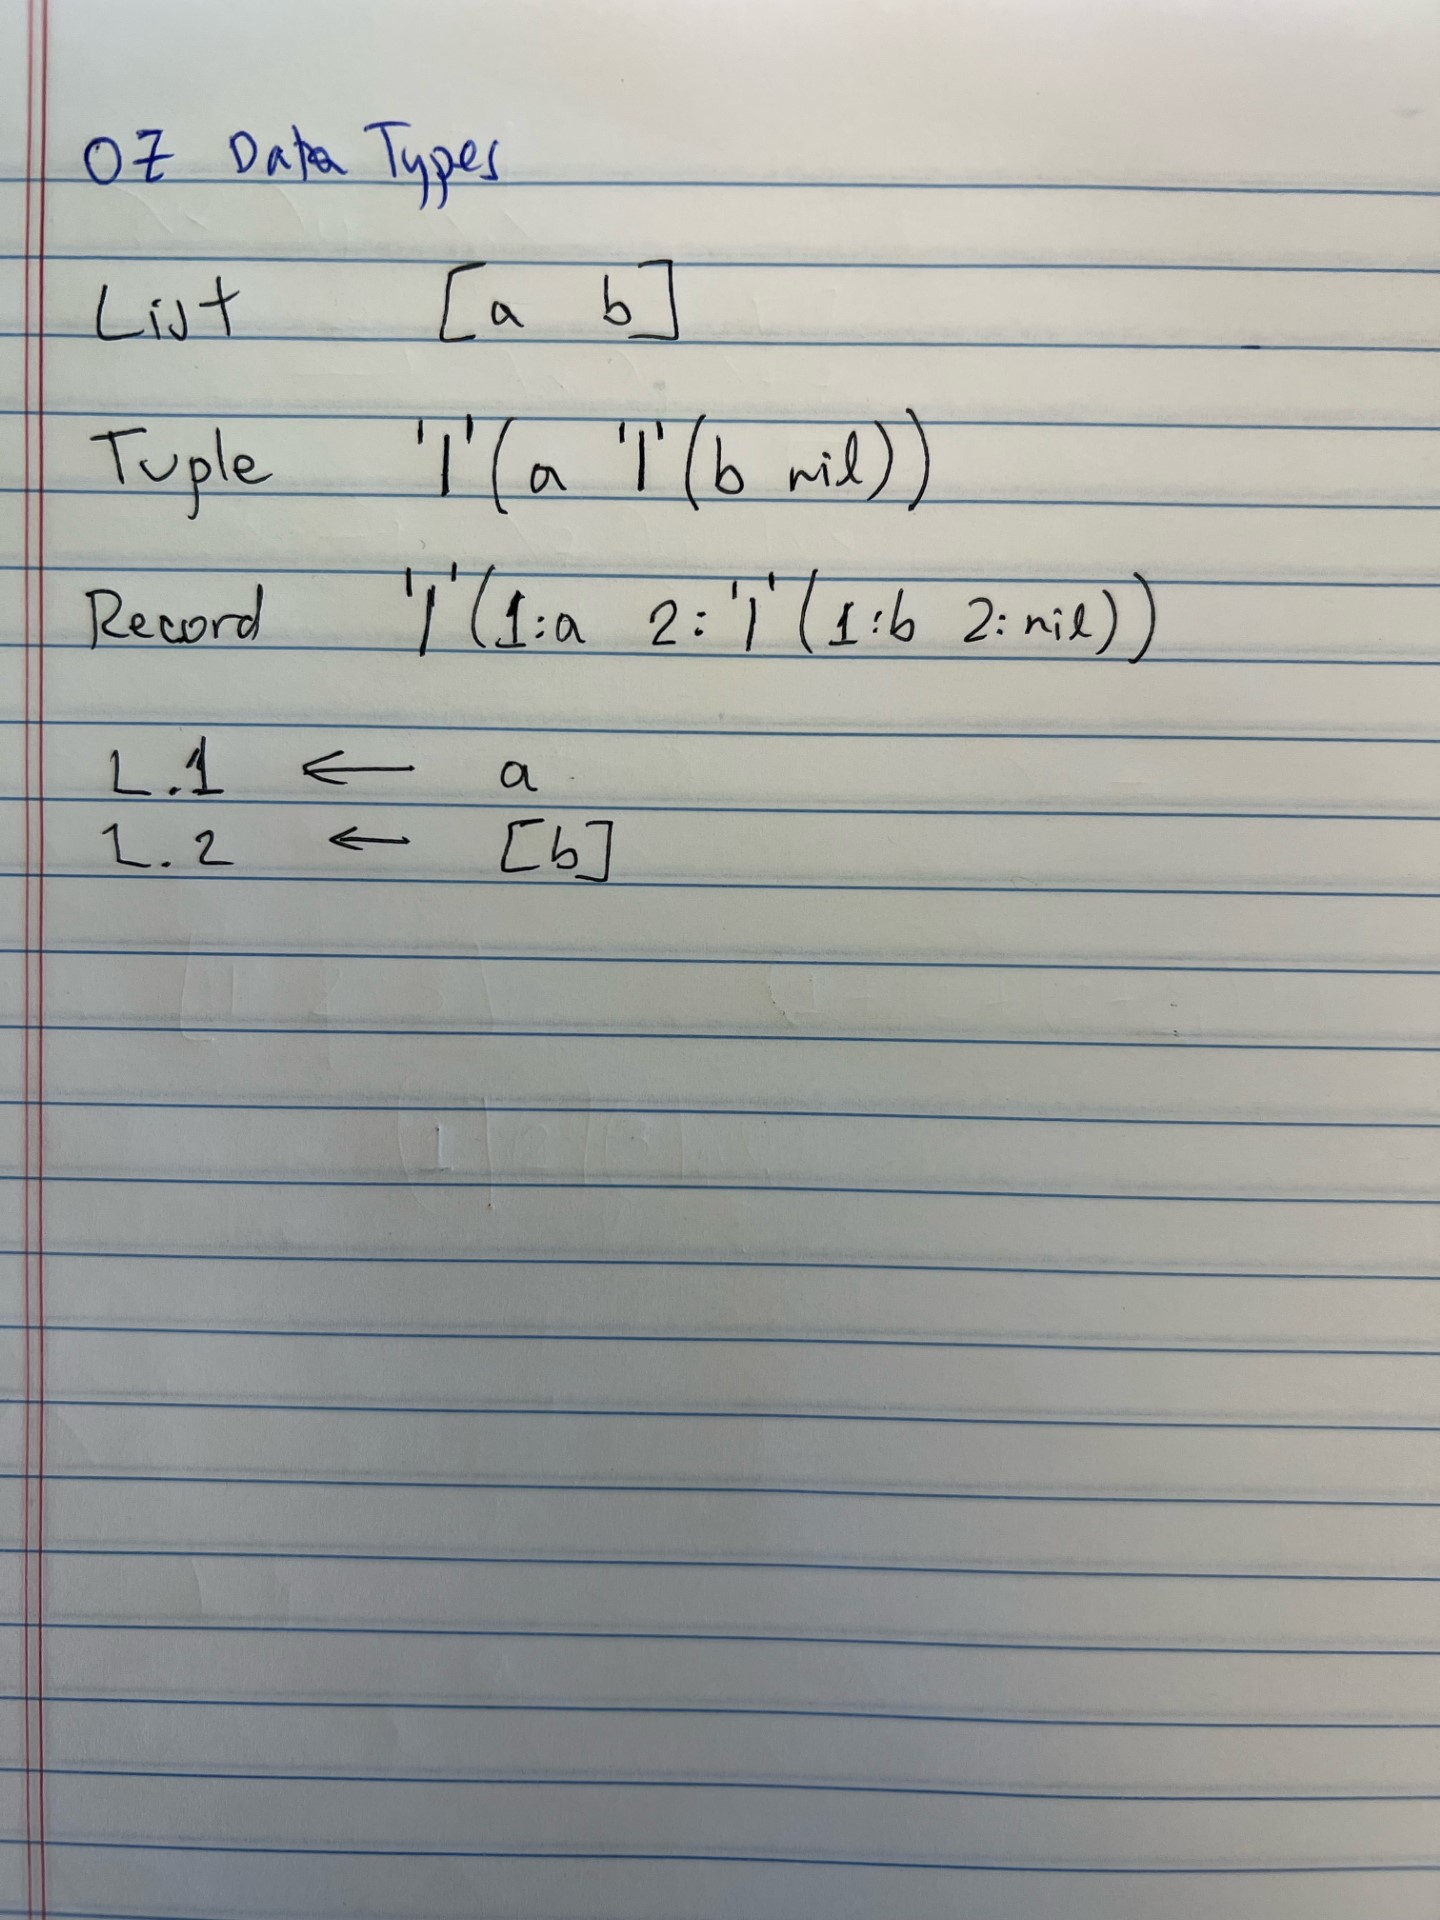 OZ Data Types
List [a b]
Tuple '|'(a '|'(b nil))
Record '|'(1:a 2:'|'(1:b 2:nil))
L.1 ← a
L.2 ← [b]